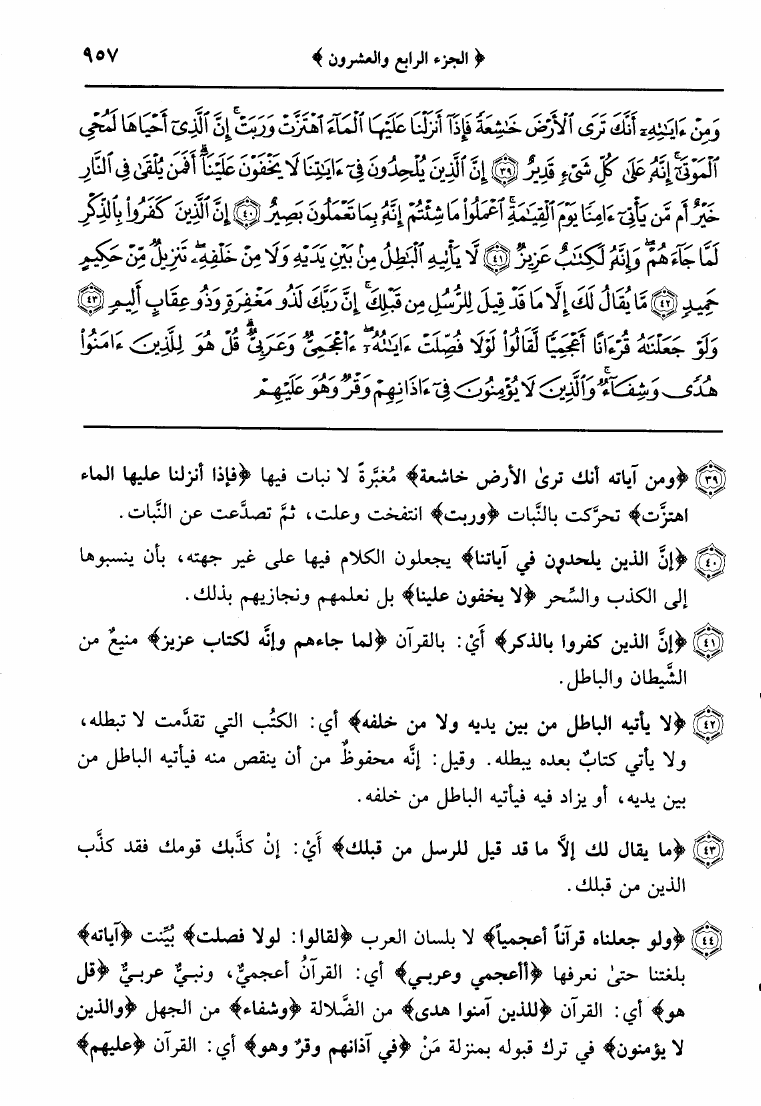 ﴿ الجزء الرابع والعشرون ﴾ ٩٥٧
وَمِنْ ءَايَـٰتِهِۦٓ أَنَّكَ تَرَى ٱلْأَرْضَ خَـٰشِعَةً فَإِذَآ أَنزَلْنَا عَلَيْهَا ٱلْمَآءَ ٱهْتَزَّتْ وَرَبَتْ ۚ إِنَّ ٱلَّذِىٓ أَحْيَاهَا لَمُحْىِ
ٱلْمَوْتَىٰٓ ۚ إِنَّهُۥ عَلَىٰ كُلِّ شَىْءٍ قَدِيرٌ ٣٩ إِنَّ ٱلَّذِينَ يُلْحِدُونَ فِىٓ ءَايَـٰتِنَا لَا يَخْفَوْنَ عَلَيْنَآ ۗ أَفَمَن يُلْقَىٰ فِى ٱلنَّارِ
خَيْرٌ أَم مَّن يَأْتِىٓ ءَامِنًا يَوْمَ ٱلْقِيَـٰمَةِ ۚ ٱعْمَلُوا۟ مَا شِئْتُمْ إِنَّهُۥ بِمَا تَعْمَلُونَ بَصِيرٌ ٤٠ إِنَّ ٱلَّذِينَ كَفَرُوا۟ بِٱلذِّكْرِ
لَمَّا جَآءَهُمْ ۖ وَإِنَّهُۥ لَكِتَـٰبٌ عَزِيزٌ ٤١ لَّا يَأْتِيهِ ٱلْبَـٰطِلُ مِنۢ بَيْنِ يَدَيْهِ وَلَا مِنْ خَلْفِهِۦ ۖ تَنزِيلٌ مِّنْ حَكِيمٍ
حَمِيدٍ ٤٢ مَّا يُقَالُ لَكَ إِلَّا مَا قَدْ قِيلَ لِلرُّسُلِ مِن قَبْلِكَ ۚ إِنَّ رَبَّكَ لَذُو مَغْفِرَةٍ وَذُو عِقَابٍ أَلِيمٍ ٤٣
وَلَوْ جَعَلْنَـٰهُ قُرْءَانًا أَعْجَمِيًّا لَّقَالُوا۟ لَوْلَا فُصِّلَتْ ءَايَـٰتُهُۥٓ ۖ ءَا۬عْجَمِىٌّ وَعَرَبِىٌّ ۗ قُلْ هُوَ لِلَّذِينَ ءَامَنُوا۟
هُدًى وَشِفَآءٌ ۖ وَٱلَّذِينَ لَا يُؤْمِنُونَ فِىٓ ءَاذَانِهِمْ وَقْرٌ وَهُوَ عَلَيْهِمْ
٣٩ ﴿ومن آياته أنك ترىٰ الأرض خاشعة﴾ مُغبَّرةً لا نبات فيها ﴿فإذا أنزلنا عليها الماء
اهتزَّت﴾ تحرَّكت بالنَّبات ﴿وربت﴾ انتفخت وعلت، ثمَّ تصدَّعت عن النَّبات.
٤٠ ﴿إنَّ الذين يلحدون في آياتنا﴾ يجعلون الكلام فيها على غير جهته، بأن ينسبوها
إلى الكذب والسِّحر ﴿لا يخفون علينا﴾ بل نعلمهم ونجازيهم بذلك.
٤١ ﴿إنَّ الذين كفروا بالذكر﴾ أَيْ: بالقرآن ﴿لما جاءهم وإنَّه لكتاب عزيز﴾ منيعٌ من
الشَّيطان والباطل.
٤٢ ﴿لا يأتيه الباطل من بين يديه ولا من خلفه﴾ أي: الكتُب التي تقدَّمت لا تبطله،
ولا يأتي كتابٌ بعده يبطله. وقيل: إنَّه محفوظٌ من أن ينقص منه فيأتيه الباطل من
بين يديه، أو يزاد فيه فيأتيه الباطل من خلفه.
٤٣ ﴿ما يقال لك إلاَّ ما قد قيل للرسل من قبلك﴾ أَيْ: إنْ كذَّبك قومك فقد كذَّب
الذين من قبلك.
٤٤ ﴿ولو جعلناه قرآناً أعجمياً﴾ لا بلسان العرب ﴿لقالوا: لولا فصلت﴾ بُيِّنت ﴿آياته﴾
بلغتنا حتىٰ نعرفها ﴿أأعجمي وعربي﴾ أي: القرآنُ أعجميٌّ، ونبيٌّ عربيٌّ ﴿قل
هو﴾ أي: القرآن ﴿للذين آمنوا هدى﴾ من الضَّلالة ﴿وشفاء﴾ من الجهل ﴿والذين
لا يؤمنون﴾ في ترك قبوله بمنزلة مَنْ ﴿في آذانهم وقرٌ وهو﴾ أي: القرآن ﴿عليهم﴾